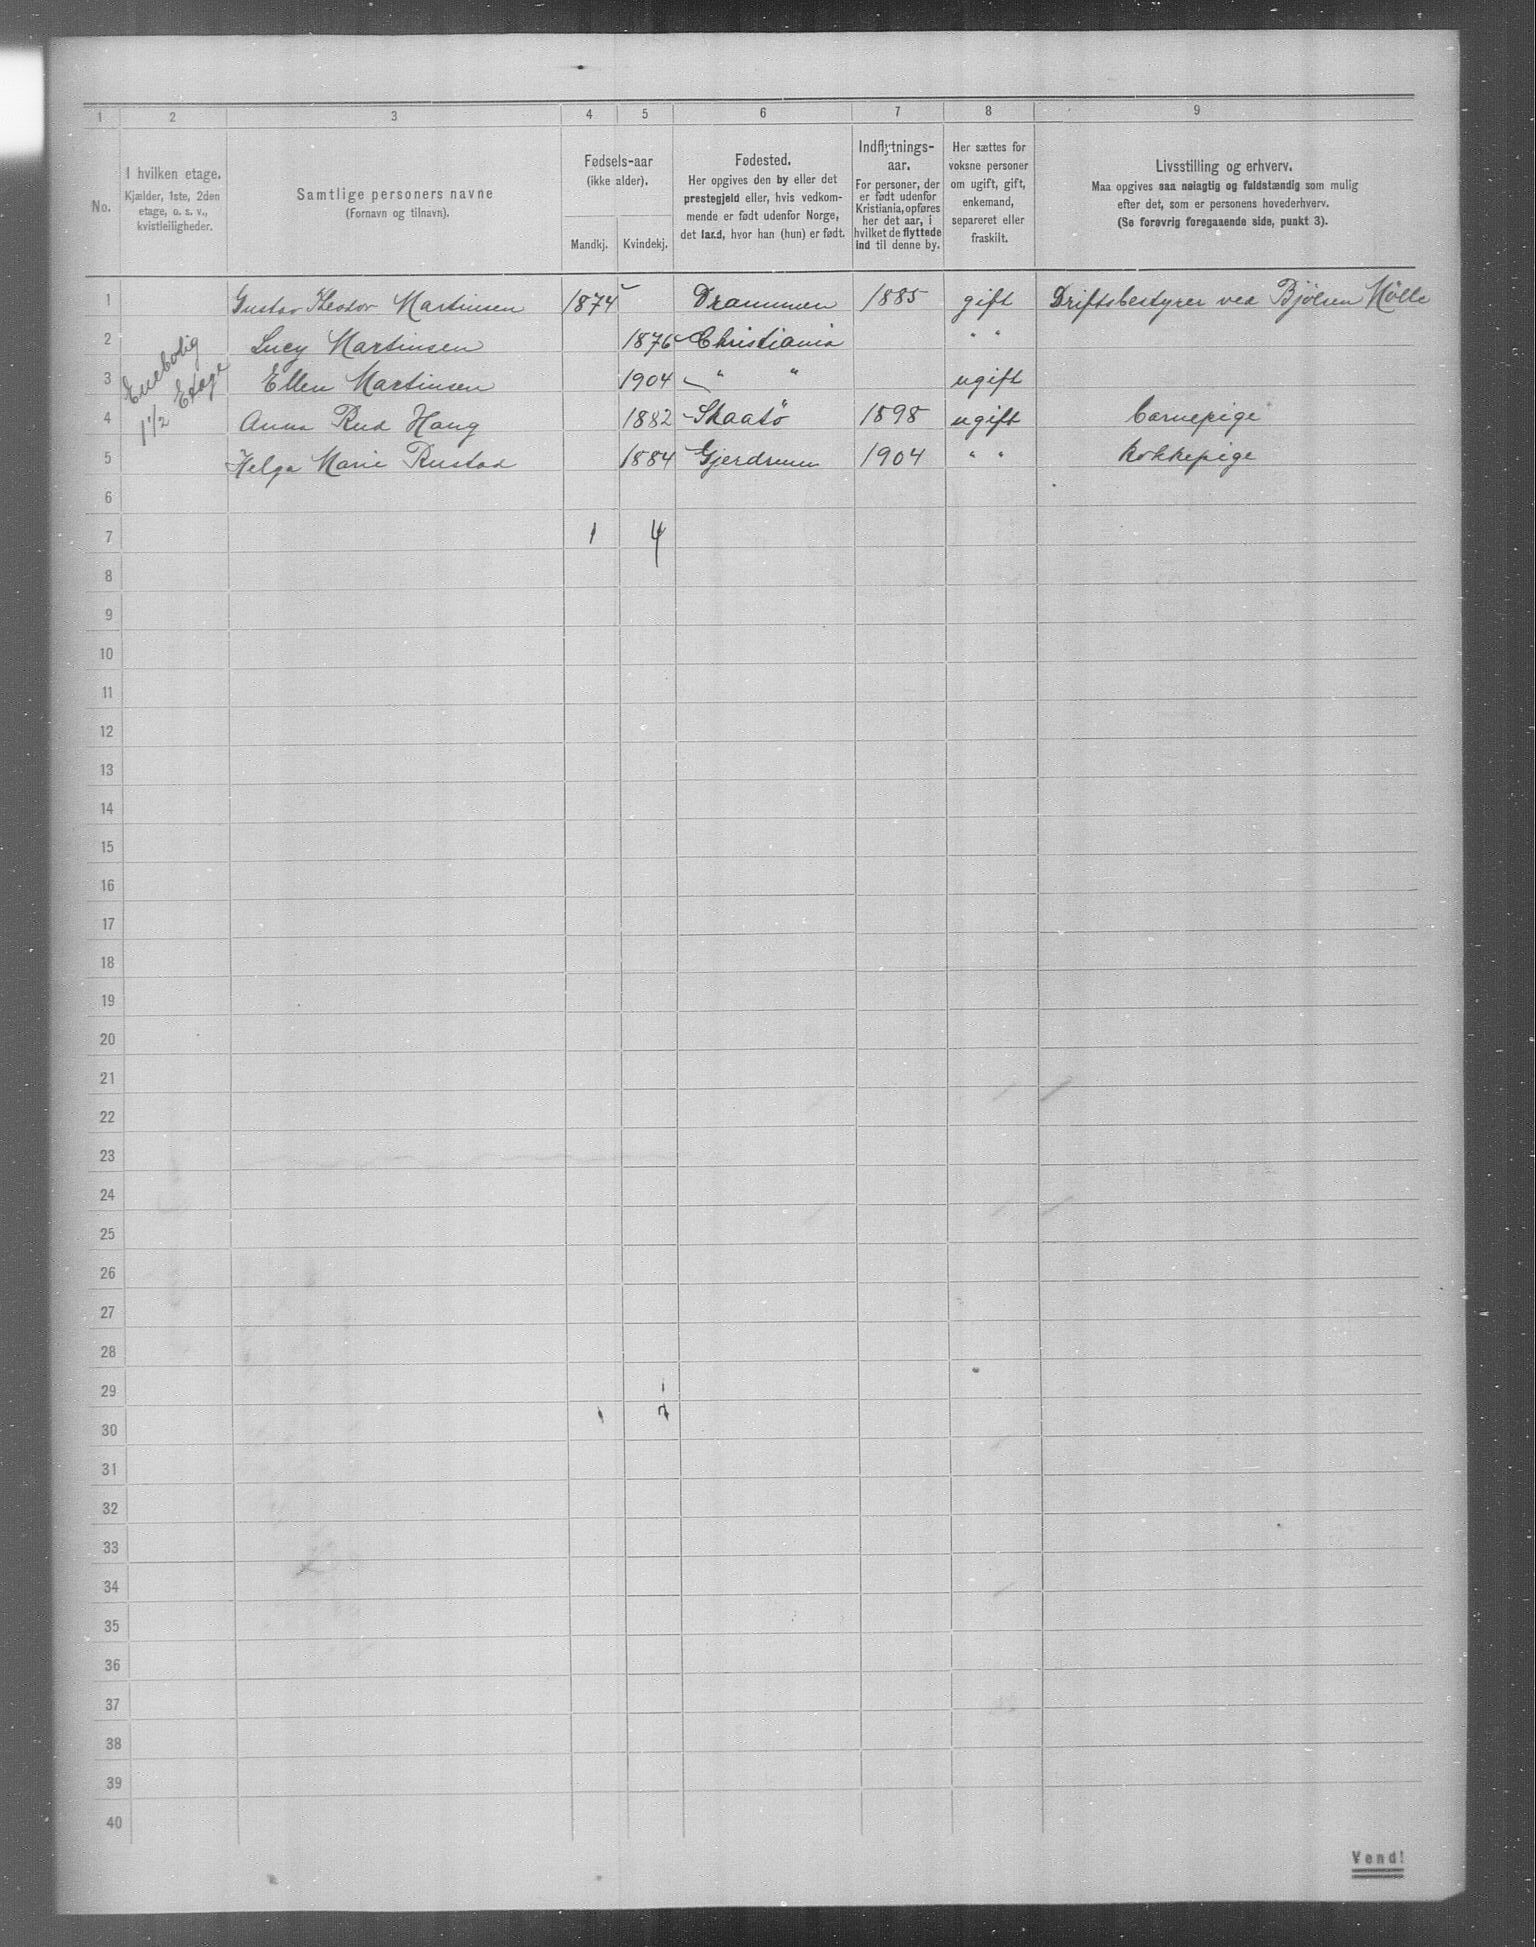 1 2 3 4 5 6 7 8 9
No.
I hvilken etage.
Kjælder, 1ste, 2den
etage, o. s. v.,
kvistleiligheder.
Samtlige personers navne
(Fornavn og tilnavn).
Fødsels-aar
(ikke alder).
Mandkj. Kvindekj.
Fødested.
Her opgives den by eller det
prestegjeld eller, hvis vedkom-
mende er født udenfor Norge,
det land, hvor han (hun) er født.
Indflytnings-
aar.
For personer, der
er født udenfor
Kristiania, opføres
her det aar, i
hvilket de flyttede
ind til denne by.
Her sættes for
voksne personer
om ugift, gift,
enkemand,
separeret eller
fraskilt.
Livsstilling og erhverv.
Maa opgives saa nøiagtig og fuldstændig som mulig
efter det, som er personens hovederhverv.
(Se forøvrig foregaaende side, punkt 3).
Enebolig
1 1/2 Etage
1 Gustav Theodor Martinsen 1874 Drammen 1885 gift Driftsbestyrer ved Bjølsen Mølle
2 Lucy Martinsen 1876 Christiania " "
3 Ellen Martinsen 1904 " " ugift
4 Anna Rud Haug 1882 Skaatö 1898 ugift barnepige
5 Helga Marie Rustad 1884 Gjerdrum 1904 " " kokkepige
6
7 1 4
8
9
10
11
12
13
14
15
16
17
18
19
20
21
22
23
24
25
26
27
28
29
30
31
32
33
34
35
36
37
38
39
40
Vend!